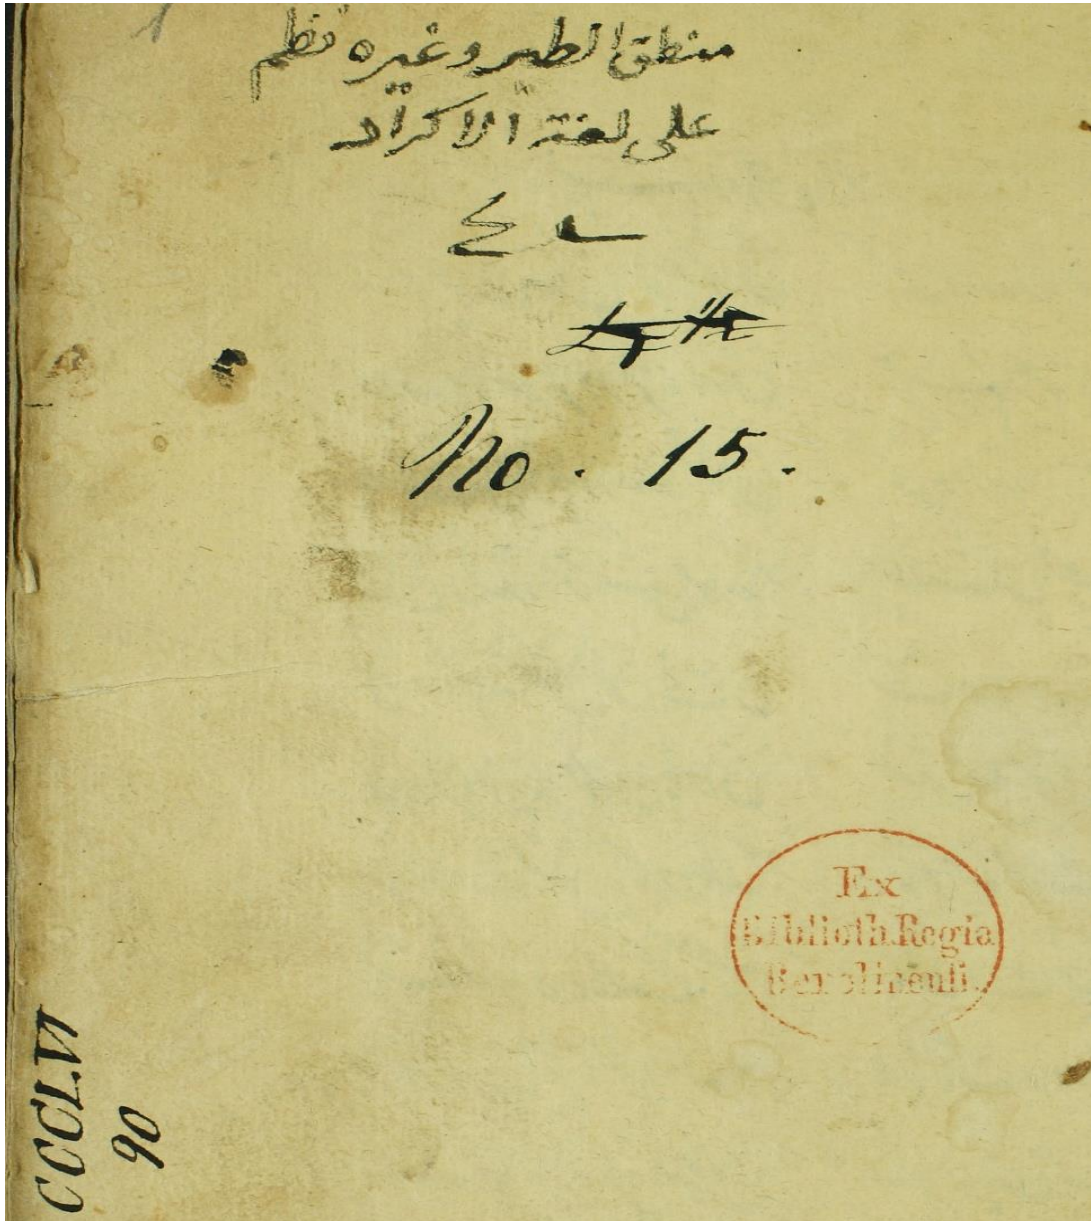 1
منطق الطير وغيره نظم
على لغة الاكراد
No. 15.
Ex
Biblioth. Regia
Berolinensi.
CCCLVI
90